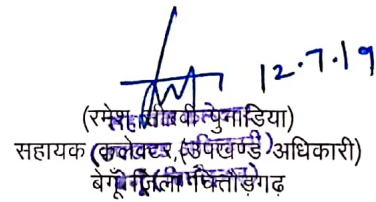 12.7.19
(रमेश सीरवी पुनाडिया)
सहायक कलेक्टर,(उपखण्ड अधिकारी)
बेगूँ जिला चित्तौड़गढ़